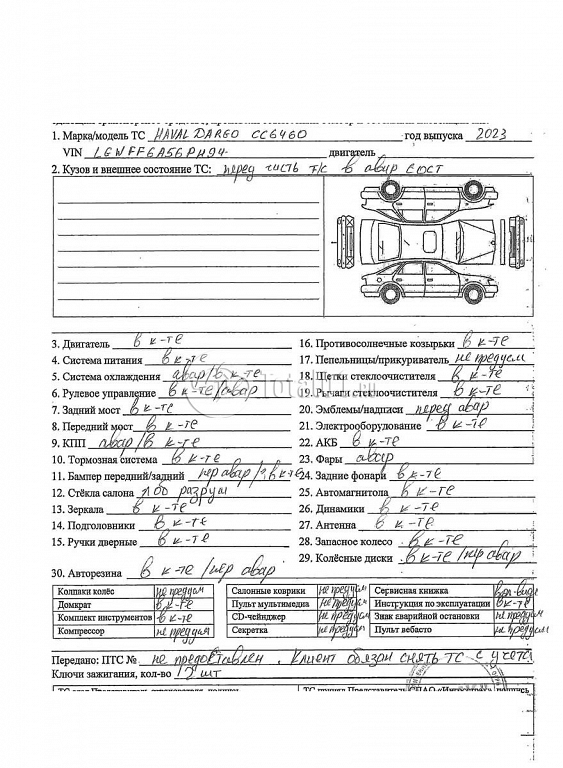 1. Марка/модель ТС HAVAL DARGO CC6460 год выпуска 2023
VIN LGWFF6A56PH94 двигатель
2. Кузов и внешнее состояние ТС: перед часть т/с в авар сост
3. Двигатель в к-те
4. Система питания в к-те
5. Система охлаждения авар/в к-те
6. Рулевое управление в к-те/авар
7. Задний мост в к-те
8. Передний мост в к-те
9. КПП авар/в к-те
10. Тормозная система в к-те
11. Бампер передний/задний пер авар/з в к-те
12. Стёкла салона лоб разруш
13. Зеркала в к-те
14. Подголовники в к-те
15. Ручки дверные в к-те
16. Противосолнечные козырьки в к-те
17. Пепельницы/прикуриватель не предусм
18. Щетки стеклоочистителя в к-те
19. Рычаги стеклоочистителя в к-те
20. Эмблемы/надписи перед авар
21. Электрооборудование в к-те
22. АКБ в к-те
23. Фары авар
24. Задние фонари в к-те
25. Автомагнитола в к-те
26. Динамики в к-те
27. Антенна в к-те
28. Запасное колесо в к-те
29. Колёсные диски в к-те/пер авар
30. Авторезина в к-те/пер авар
Колпаки колёс не предусм Салонные коврики не предусм Сервисная книжка
Домкрат в к-те Пульт мультимедиа не предусм Инструкция по эксплуатации в к-те
Комплект инструментов в к-те CD-чейнджер не предусм Знак аварийной остановки не предусм
Компрессор не предусм Секретка не предусм Пульт вебасто не предусм
Передано: ПТС № не предоставлен. Клиент обязан снять ТС с учета
Ключи зажигания, кол-во 2 шт